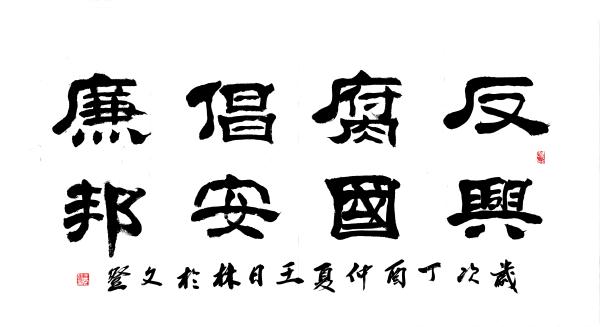 反腐倡廉
興國安邦
歲次丁酉仲夏王日林於文登